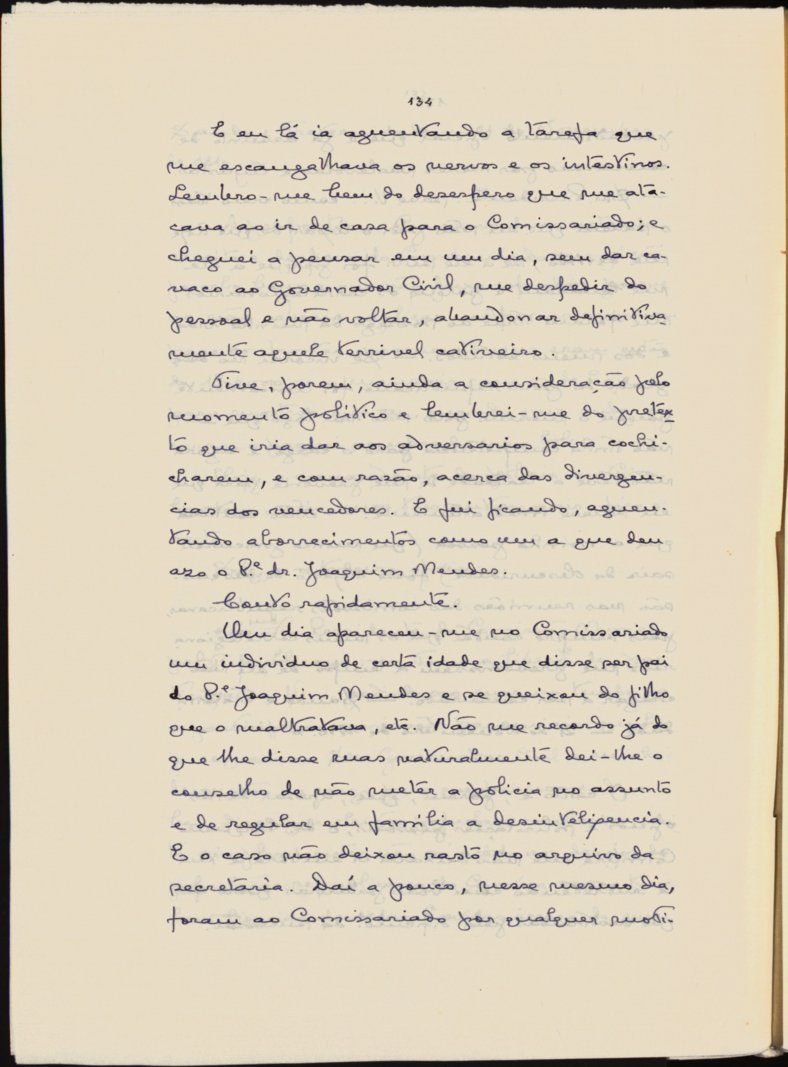 134
E eu lá ia aguentando a tarefa que
me escangalhava os nervos e os intestinos.
Lembro-me bem do desespero que me ata-
cava ao ir de casa para o Comissariado; e
cheguei a pensar em um dia, sem dar ca-
vaco ao Governador Civil, me despedir do
pessoal e não voltar, abandonar definitiva-
mente aquele terrivel cativeiro.
Tive, porem, ainda a consideração pelo
momento político e lembrei-me do pretex-
to que iria dar aos adversarios para cochi-
charem, e com razão, acerca das divergen-
cias dos vencedores. E fui ficando, aguen-
tando aborrecimentos como um a que deu
azo o P.e dr. Joaquim Mendes.
Conto rapidamente.
Um dia apareceu-me no Comissariado
um individuo de certa idade que disse ser pai
do P.e Joaquim Mendes e se queixou do filho
que o maltratava, etc. Não me recordo já do
que lhe disse mas naturalmente dei-lhe o
conselho de não meter a policia no assunto
e de regular em família a desinteligencia.
E o caso não deixou rasto no arquivo da
secretaria. Daí a pouco, nesse mesmo dia,
foram ao Comissariado por qualquer moti-